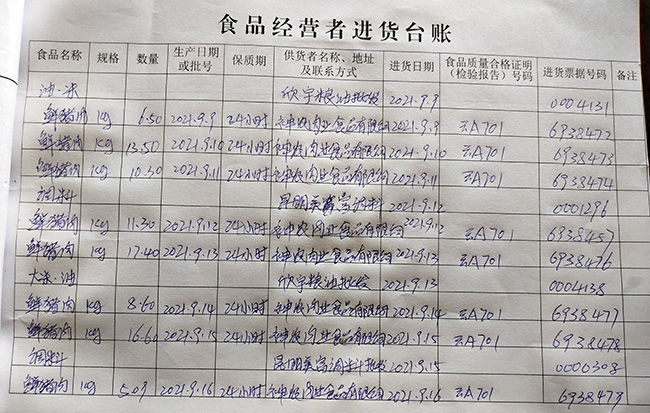 食品经营者进货台账
食品名称 规格 数量 生产日期或批号 保质期 供货者名称、地址及联系方式 进货日期 食品质量合格证明(检验报告)号码 进货票据号码 备注
油.米 欣宇粮油批发 2021.9.9 0004131
鲜猪肉 kg 6.50 2021.9.9 24小时 神农肉业食品有限公司 2021.9.9 云A701 6938472
鲜猪肉 kg 13.50 2021.9.10 24小时 神农肉业食品有限公司 2021.9.10 云A701 6938473
鲜猪肉 kg 10.30 2021.9.11 24小时 神农肉业食品有限公司 2021.9.11 云A701 6938474
调料 昆明 调料 2021.9.12 0001296
鲜猪肉 kg 11.30 2021.9.12 24小时 神农肉业食品有限公司 2021.9.12 云A701 6938457
鲜猪肉 kg 17.40 2021.9.13 24小时 神农肉业食品有限公司 2021.9.13 云A701 6938476
大米.油 欣宇粮油批发 2021.9.13 0004138
鲜猪肉 kg 8.60 2021.9.14 24小时 神农肉业食品有限公司 2021.9.14 云A701 6938477
鲜猪肉 kg 16.60 2021.9.15 24小时 神农肉业食品有限公司 2021.9.15 云A701 6938478
调料 昆明 调料批发 2021.9.15 0000308
鲜猪肉 kg 5.09 2021.9.16 24小时 神农肉业食品有限公司 2021.9.16 云A701 6938479